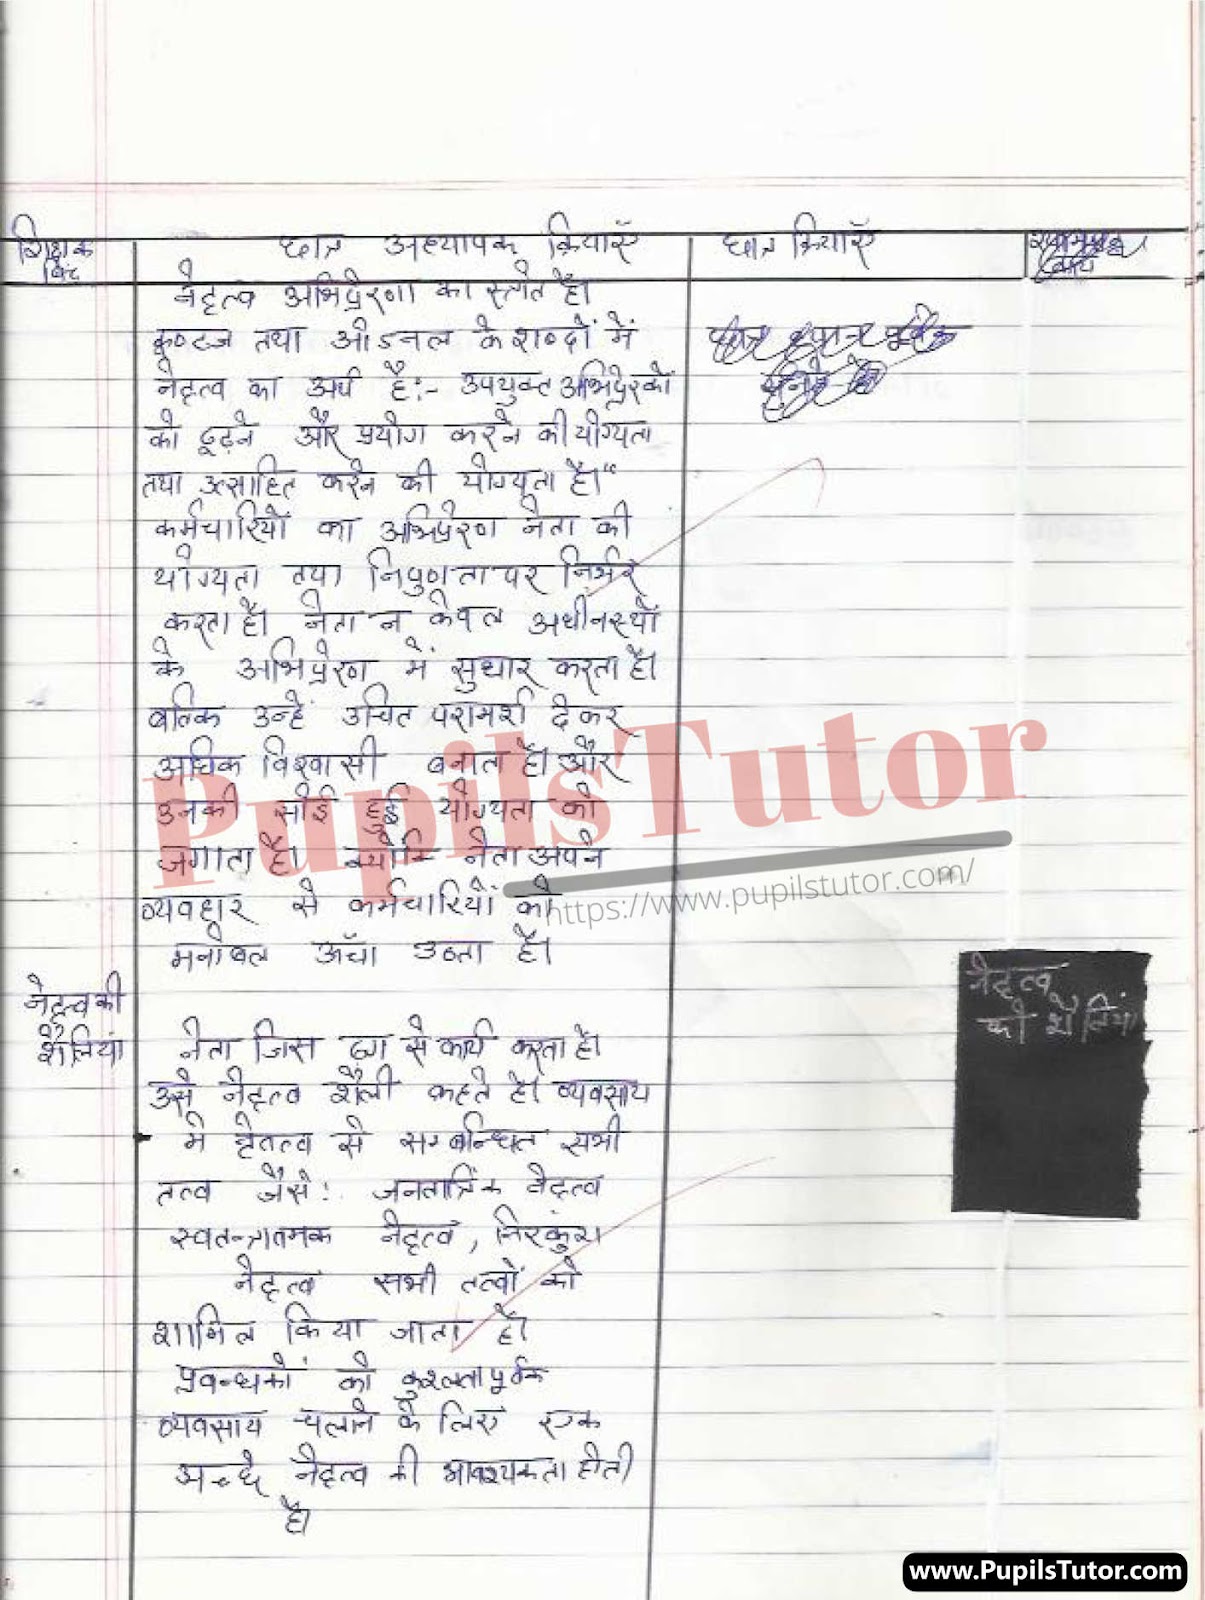 शिक्षक बिंदु
छात्र अध्यापक क्रियाएँ
छात्र क्रियाएँ
नेतृत्व अभिप्रेरणा का स्त्रोत है।
कूण्टज तथा ओडनल के शब्दों में
नेतृत्व का अर्थ है:- उपयुक्त अभिप्रेरकों
को ढूढ़ने और प्रयोग करने की योग्यता
तथा उत्साहित करने की योग्यता है।"
कर्मचारियों का अभिप्रेरण नेता की
योग्यता तथा निपुणता पर निर्भर
करता है। नेता न केवल अधीनस्थों
के अभिप्रेरण में सुधार करता है।
बल्कि उन्हें उचित परामर्श देकर
अधिक विश्वासी बनाता है। और
उनकी सोई हुई योग्यता को
जगाता है। क्योंकि नेता अपने
व्यवहार से कर्मचारियों को
मनोबल ऊँचा उठता है।
नेतृत्व की
शैलियां
नेता जिस ढंग से कार्य करता है।
उसे नेतृत्व शैली कहते है। व्यवसाय
मे नेतृत्व से सम्बन्धित सभी
तत्व जैसे: जनतात्रिंक नेतृत्व
स्वतन्त्रातमक नेतृत्व, निरकुंश
नेतृत्व सभी तत्वों को
शामिल किया जाता है।
प्रबन्धकों को कुशलतापूर्वक
व्यवसाय चलाने के लिए एक
अच्छे नेतृत्व की आवश्यकता होती
है।
नेतृत्व
की शैलियां
PupilsTutor
https://www.pupilstutor.com/
www.PupilsTutor.com